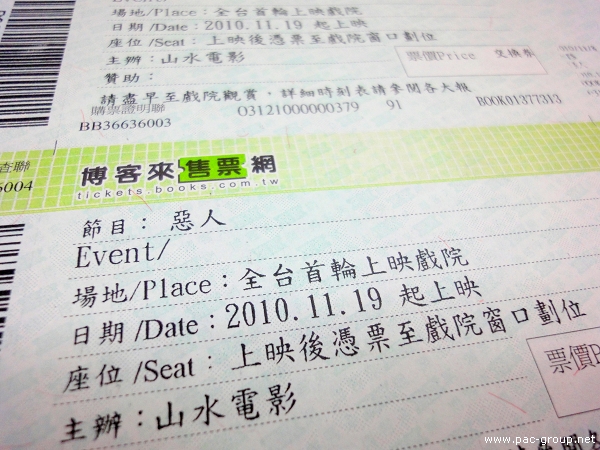 Event/
場地/Place：全台首輪上映戲院
日期/Date：2010.11.19 起上映
座位/Seat：上映後憑票至戲院窗口劃位
主辦：山水電影
票價Price 交換券
贊助：
請盡早至戲院觀賞，詳細時刻表請參閱各大報
購票證明聯 03121000000379 91 BOOK01377313
BB36636003
查聯
6004
博客來售票網
tickets.books.com.tw
節目：惡人
Event/
場地/Place：全台首輪上映戲院
日期/Date：2010.11.19 起上映
座位/Seat：上映後憑票至戲院窗口劃位
票價P
主辦：山水電影
www.pac-group.net